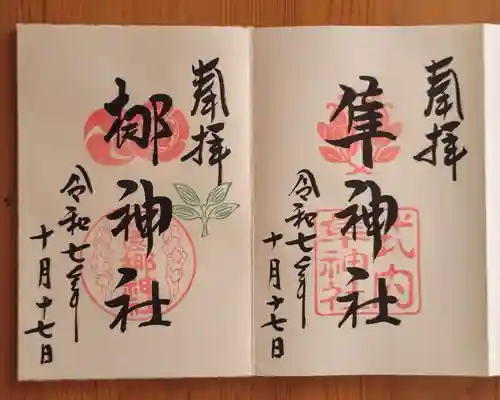 奉拝
隼神社
令和七年
十月十七日
式内
隼神社
奉拝
梛神社
令和七年
十月十七日